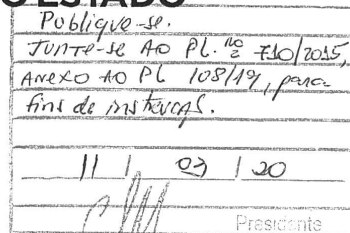 O ESTADO
Publique-se.
Junte-se ao PL. nº 710/2015,
Anexo ao PL 108/19, para
fins de
11 / 03 / 20
Presidente